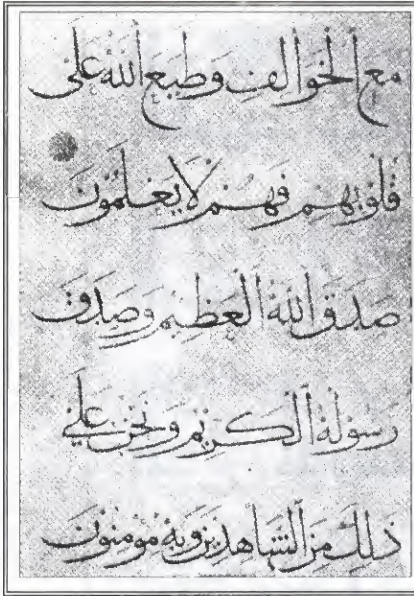 مع ٱلخوالف وطبع ٱلله على
قلوبهم فهم لا يعلمون
صدق ٱلله ٱلعظيم وصدق
رسوله ٱلكريم ونحن على
ذلك من ٱلشاهدين وبه مومنون